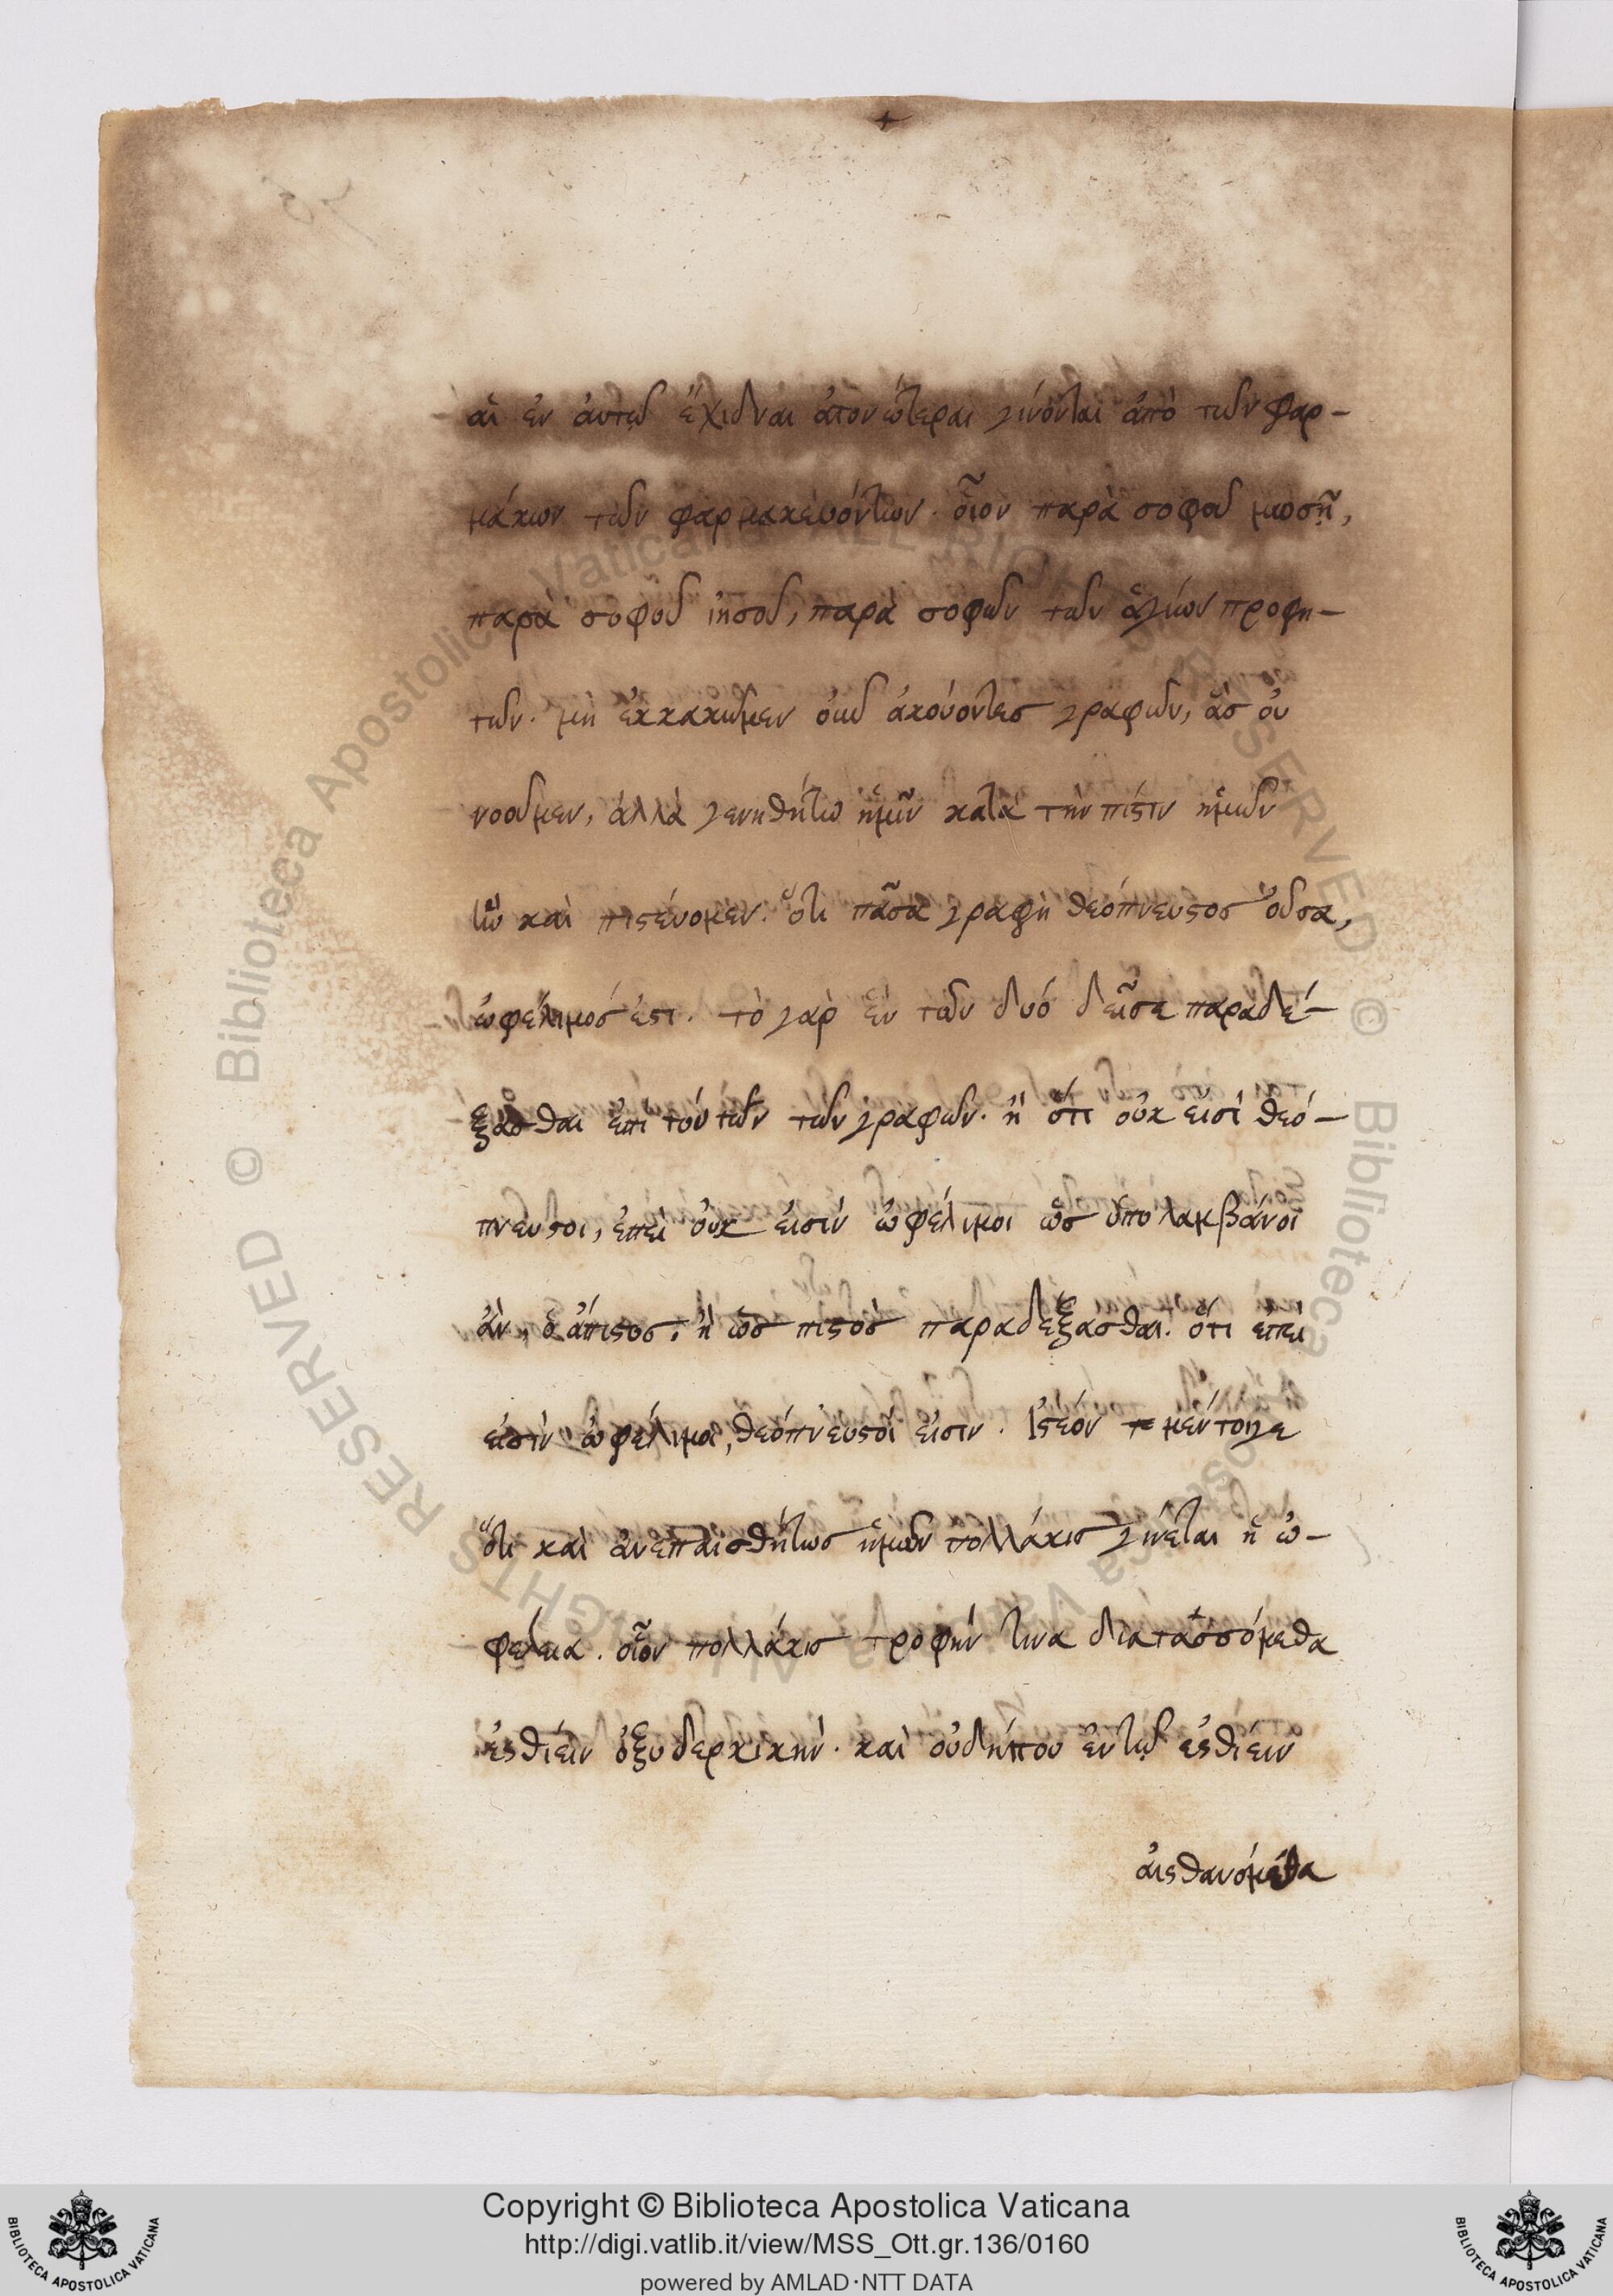 αἱ ἐν ἀυτῶ ἔχιδναι ἀτονώτεραι γίνονται ἀπὸ τῶν φαρ-
μάκων τῶν φαρμακευόντων. οἷον παρὰ σοφοῦ μωσῆ,
παρὰ σοφοῦ ἰησοῦ, παρὰ σοφῶν τῶν ἁγίων προφη-
τῶν. μὴ ἐκκακῶμεν οὖν ἀκούοντες γραφῶν, ἃς οὐ
νοοῦμεν, ἀλλὰ γενηθήτω ἡμῖν κατὰ τὴν πίστιν ἡμῶν
ἣν καὶ πιστέυομεν. ὅτι πᾶσα γραφὴ θεόπνευστος ὀῦσα,
ὠφέλιμός ἐστι. τὸ γὰρ ἓν τῶν δυό δεῖ σε παραδέ-
ξασθαι ἐπὶ τούτων τῶν γραφῶν. ἢ ὅτι οὐκ εἰσὶ θεό-
πνευστοι, ἐπεὶ ὀυκ ἐισὶν ὠφέλιμοι ὡς ὑπολαμβάνοι
ἂν, ὁ ἄπιστος. ἢ ὡς πιστὸς παραδέξασθαι. ὅτι ἐπεὶ
εἰσὶν ὠφέλιμοι, θεόπνευστοί ἐισιν. Ἰστέον μέντοιγε
ὅτι καὶ ἀνεπαισθήτως ἡμῶν πολλάκις γίνεται ἡ ὠ-
φέλεια. οἷον πολλάκις τροφήν τινα διατασσόμεθα
ἐσθίειν ὀξυδερκικὴν. καὶ οὐδήπου ἐν τῶ ἐσθίειν
ἀισθανόμεθα
Copyright © Biblioteca Apostolica Vaticana
http://digi.vatlib.it/view/MSS_Ott.gr.136/0160
powered by AMLAD·NTT DATA